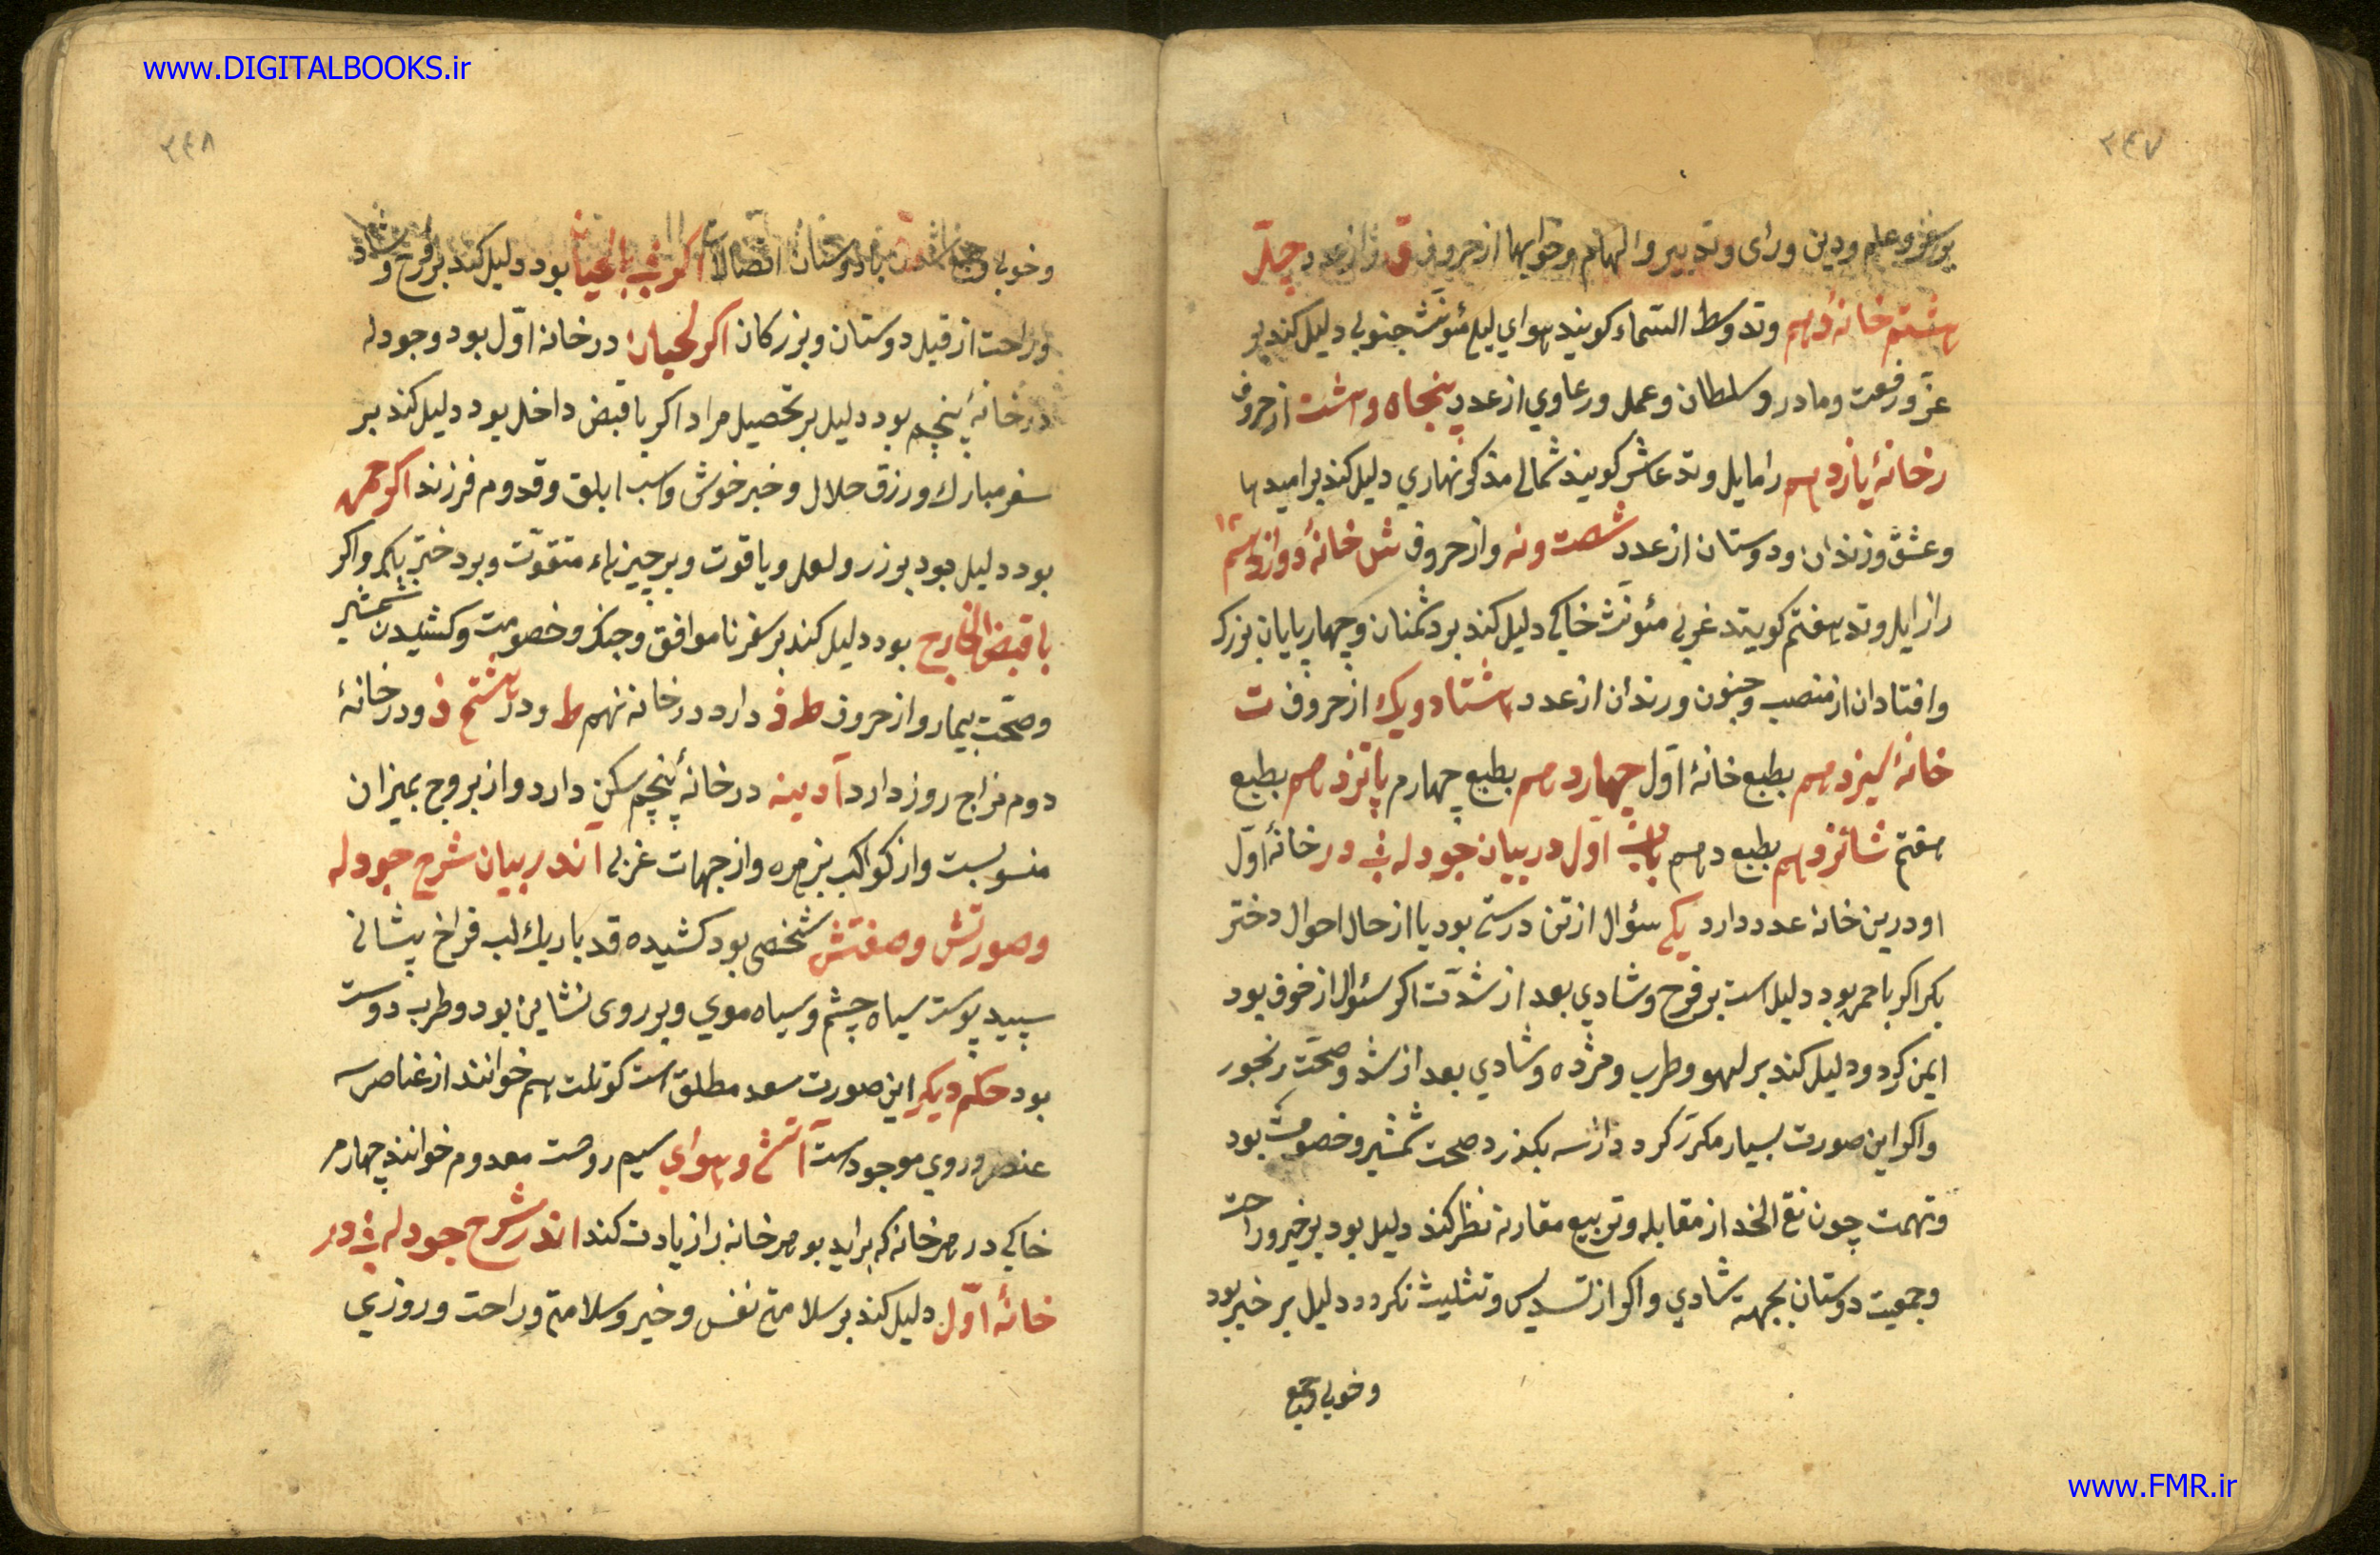 www.DIGITALBOOKS.ir
٣٤٧
بود دلیل ودین ورای وتدبیر والهام وخوابها از حروف ق واز عدد چهل
هشتم خانهٔ دهم وتد وسط السّماء کویند هوای لیلی مئونّث جنوبی دلیل کند بر
عزّ ورفعت ومادر وسلطان وعمل ورعاوی از عدد پنجاه وهشت از حروف
ر خانهٔ یازدهم را مایل وتد عاشر کویند شمالی مذکر نهاری دلیل کند بر امیدها
وعشق وزندان ودوستان از عدد شصت ونه واز حروف ش خانهٔ دوازدهم ١٢
را زایل وتد هفتم کویند غربی مئونّث خاکی دلیل کند بر دشمنان وچهارپایان بزرک
وافتادان از منصب وجنون ورندان از عدد هشتاد ویک از حروف ت
خانهٔ سیزدهم بطبع خانهٔ اوّل چهاردهم بطبع چهارم پانزدهم بطبع
هفتم شانزدهم بطبع دهم باب اوّل در بیان جودله فی در خانهٔ اوّل
او درین خانه عدد دارد یکی سؤال از تن درستی بود یا از حال احوال دختر
بکر اکر با حمره بود دلیل است بر فرح وشادی بعد از شدّت اکر سئوال از خوف بود
ایمن کردد دلیل کند بر لهو وطرب ومژده وشادی بعد از شد وصحّت رنجور
واکر این صورت بسیار مکرّر کردد از سه بکذرد صحت شمشیر وخصومت بود
وتهمت چون نقی الخد از مقابله وتربیع مقارنه نظر کند دلیل بود بر خیر وراحت
وجمعیت دوستان بجهته شادی واکر از تسدیس وتثلیث نکرد دلیل بر خیر بود
وخوبی وجمع
٣٤٨
وخوبی وجمع با دوستان اتصالات اکر فی با لحیان بود دلیل کند بر فرح وشاد
وراحت از قبل دوستان وبزرکان اکر لحیان در خانه اوّل بود وجودله
در خانهٔ پنجم بود دلیل بر تحصیل مراد اکر با قبض داخل بود دلیل کند بر
سفر مبارک ورزق حلال وخبر خوش واسب ابلق وقدوم فرزند اکر حمره
بود دلیل بود بر زر ولعل ویاقوت وبر چیزهاء متقوّت وبر دختر بکر واکر
با قبض الخارج بود دلیل کند بر سفر ناموافق وجنک وخصومت وکشیدن شمشیر
وصحّت بیمار واز حروف ط ف دارد در خانه نهم ط ودر هشتم ف ودر خانهٔ
دوم مزاج روز دارد آدینه در خانهٔ پنجم سکن دارد واز بروج بمیزان
منسوبست واز کواکب بزهره واز جهات غربی آندر بیان شرح جودله
وصورتش وصفتش شخصی بود کشیده قد باریک لب فراخ پیشانی
سپید پوست سیاه چشم وسیاه موی وبر روی نشاین بود وطرب دوست
بود حکم دیکر این صورت سعد مطلق است کوتلت هم خوانند از عناصر سه
عنصر وروی موجودست آتشی وهوای سیم روست معدوم خوانند چهارم
خاکی در هر خانه که براید بو هر خانه را زیادت کند اندر شرح جودله فی در
خانهٔ اوّل دلیل کند بر سلامتی نفس وخیر وسلامتی وراحت وروزی
www.FMR.ir